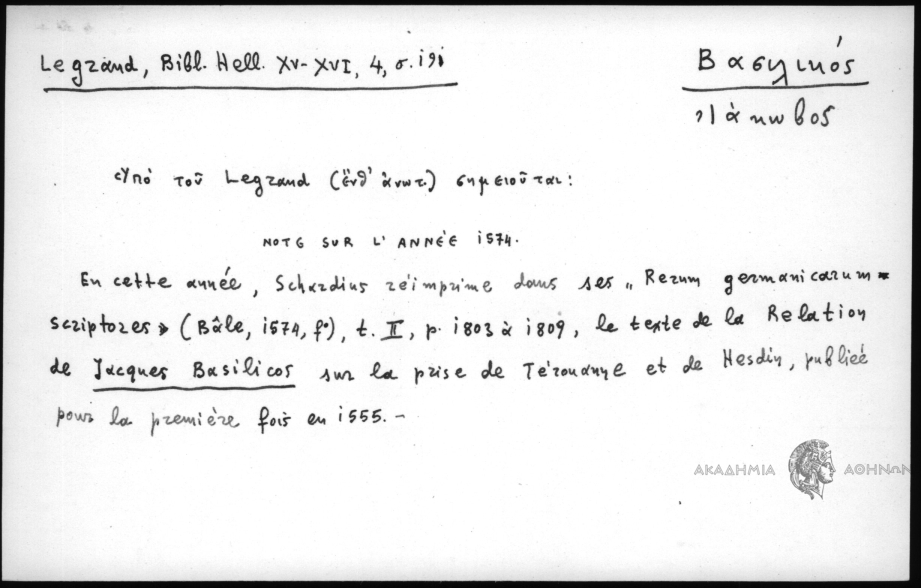 Legrand, Bibl. Hell. XV-XVI, 4, σ. 191
Βασιλικός
Ἰάκωβος
Ὑπό τοῦ Legrand (ἔνθ' ἀνωτ.) σημειοῦται:
NOTE SUR L'ANNÉE 1574.
En cette année, Schardius réimprime dans ses „ Rerum germanicarum
scriptores » (Bâle, 1574, fº), t. II, p. 1803 à 1809, le texte de la Relation
de Jacques Basilicos sur la prise de Térouanne et de Hesdin, publiée
pour la première fois en 1555. –
ΑΚΑΔΗΜΙΑ ΑΘΗΝΩΝ